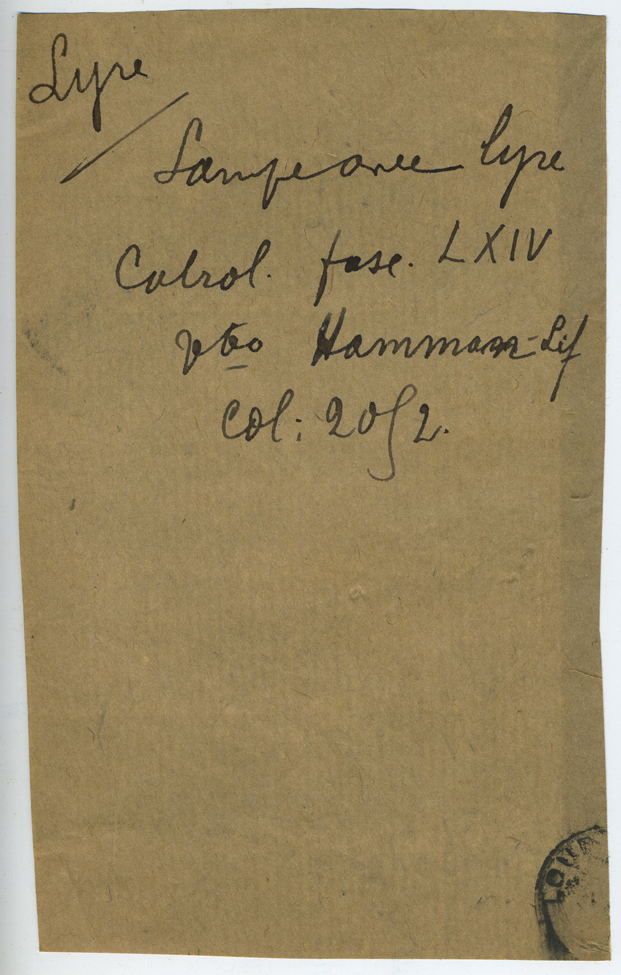 Lyre
Lampe avec lyre
Cabrol. fasc. LXIV
Vbo Hammam-Lif
Col: 2052.
LOU